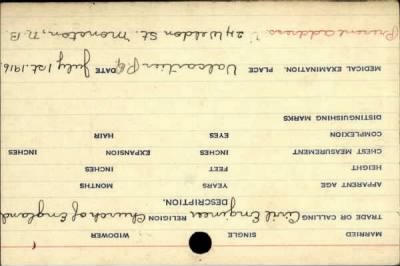 MARRIED SINGLE WIDOWER
TRADE OR CALLING Civil Engineer RELIGION Church of England
DESCRIPTION.
APPARENT AGE YEARS MONTHS
HEIGHT FEET INCHES
CHEST MEASUREMENT INCHES EXPANSION INCHES
COMPLEXION EYES HAIR
DISTINGUISHING MARKS
MEDICAL EXAMINATION. PLACE Valcartier PQ. DATE July 1st. 1916.
Present address 24 Weldon St. Moncton, N.B.